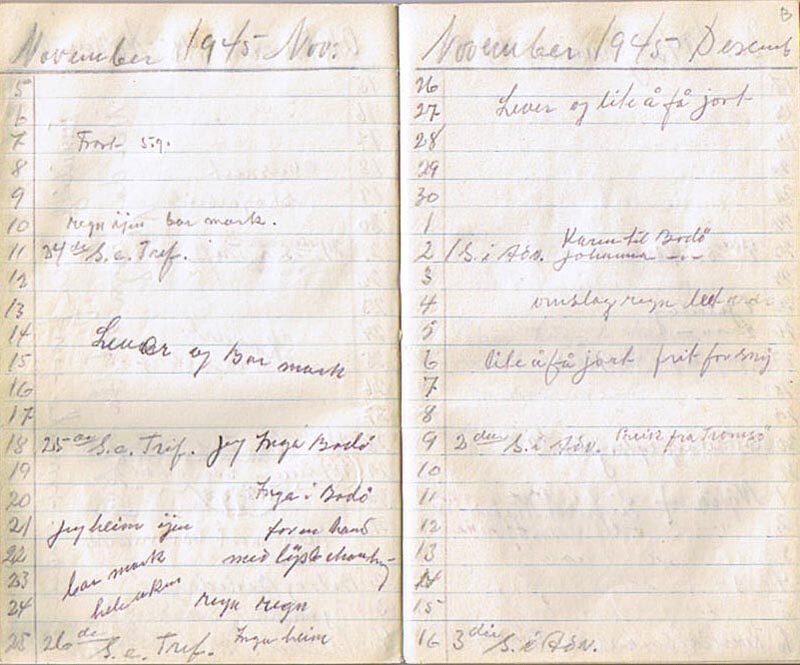 November 1945 Nov.
5
6
7 Frost 5.9.
8
9
10 regn ijen bar mark.
11 24de S. e. Tref.
12
13
14 Lever og Bar mark
15
16
17
18 25de S. e. Trif. jeg Inga Bodö
19
20 Inga i Bodö
21 jeg heim ijen for en haand
22 bar mark med
23
24 regn regn
25 26de S. e. Tref. Inga heim
B
November 1945 Desemb
26
27 Lever og lite å få jort
28
29
30
1
2 1 S. i Adv. Karen til Bodö
Johanna - . -
3
4 omslag regn
5
6 lite å få jort frit for snij
7
8
9 2den S. i Adv. fra Tromsö
10
11
12
13
14
15
16 3die S. i Adv.